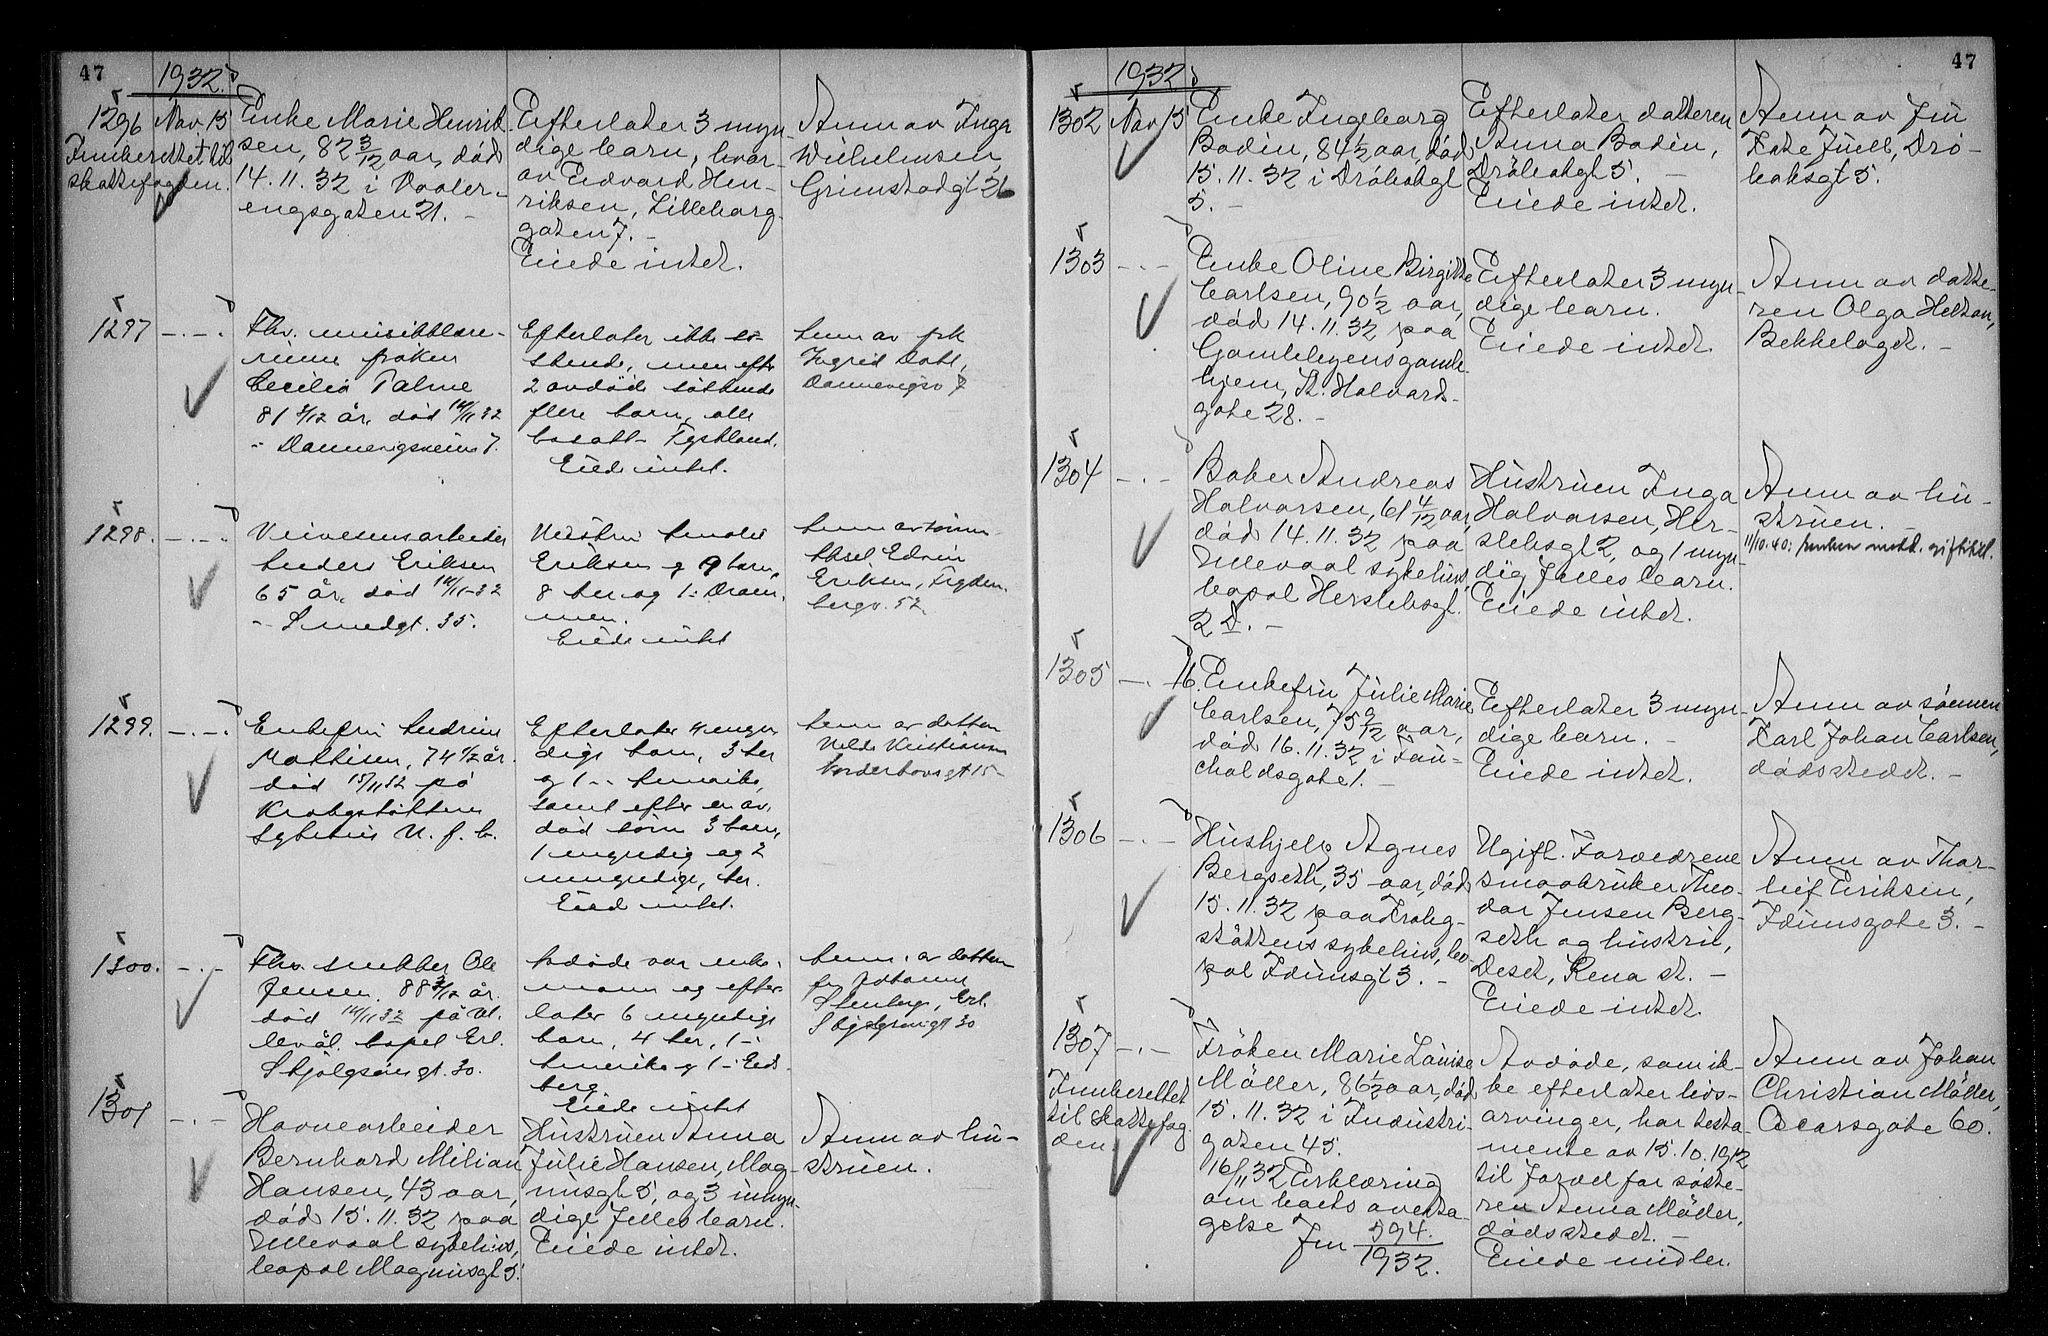 47
1932.
1296
Nov. 15
Innberettet til
skattefogden.
Enke Marie Henrik-
sen, 82 3/12 aar, død
14.11.32 i Vaaler-
engsgaten 21. -
Efterlater 3 myn-
dige barn, hvor-
av Edvard Hen-
riksen, Lilleborg-
gaten 7. -
Eiede intet.
Anm av Inga
Wilhelmsen,
Grimstadgt 26
1297 -.-.
Fhv. musikklære-
rinne frøken
Cecilia Palme
81 år, død 14/11 32
Dannevigsveien 7.
Efterlater ikke sø-
skende, men efter
2 avdøde søskende
flere barn, alle
bosatt Tyskland.
Eiede intet.
Anm av frk
Ingrid Dahl,
Dannevigsv 7
1298. -.-.
Veivesensarbeider
Anders Eriksen
65 år, død 14/11-32
Smedgt. 35.
Hustru
Eriksen og 9 barn,
8 her og 1 i Dram-
men.
Eiede intet
Anm av sønn
Aksel Edvin
Eriksen,
berg. 52
1299. -.-.
Enkefru Andrine
Mathisen, 74 år.
død 15/11 32 på
Krohgstøttens
sykehus
Efterlater 4 myn-
dige barn, 3 her
og 1 i Amerika,
samt efter en av-
død sønn 3 barn,
1 myndig og 2
umyndige, her.
Eied intet.
Anm av datter
Hilda Kristiansen
Norderhovsgt 15
1300. -.-
Fhv. snekker Ole
Jensen. 88 3/12 år.
død 14/11 32 på Ul-
levål. bopel Erl.
Skjolgsøns gt. 30.
Avdøde var enke-
mann og efter-
later 6 myndige
barn, 4 her, 1 i
Amerika og 1 i Eids-
berg
Eiede intet
Anm. av datter
fru Johanne
Stenberg, Erl.
Skjalgsøns gt 30
1301 -.-
Havnearbeider
Bernhard Milian
Hansen, 43 aar,
død 15.11.32 paa
Ullevaal sykehus,
bopæl Magnusgt 5.
Hustruen Anna
Julie Hansen, Mag-
nusgt 5, og 3 umyn-
dige fælles barn.
Eiede intet.
Anm av hu-
struen.
47
1932
1302
Nov 15
Enke Ingeborg
Bodin, 84 1/2 aar, død
15.11.32 i Drøbakgt
5. -
Efterlater datteren
Anna Bodin,
Drøbakgt 5. -
Eiede intet.
Anm av Fru
Kate Juell, Drø-
baksgt 5.
1303 -.-
Enke Oline Birgitte
Carlsen, 90 1/2 aar,
død 14.11.32 paa
Gamlebyens gamle-
hjem, St. Halvards-
gate 28. -
Efterlater 3 myn-
dige barn.
Eiede intet
Anm av datte-
ren Olga Helton,
Bekkelaget. -
1304 -.-
Baker Andreas
Halvorsen, 61 4/12 aar,
død 14.11.32 paa
Ullevaal sykehus,
bopæl Herslebsgt.
2 D. -
Hustruen Inga
Halvorsen, Her-
slebsgt 2, og 1 myn-
dig fælles barn.
Eiede intet.
Anm av hu-
struen. -
11/10.40: Enken medd. giftatt.
1305 -.- 16.
Enkefru Julie Marie
Carlsen, 75 9/12 aar,
død 16.11.32 i Fau-
chaldsgate 1. -
Efterlater 3 myn-
dige barn. -
Eiede intet.
Anm av sønnen
Karl Johan Carlsen,
dødsstedet. -
1306 -.-
Hushjelp Agnes
Bergseth, 35 aar, død
15.11.32 paa Krohg-
støttens sykehus, bo-
pæl Idunsgt 3. -
Ugift. Forældrene
smaabruker Theo-
dor Jensen Berg-
seth og hustru,
Deset, Rena st. -
Eiede intet.
Anm av Thor-
leif Eriksen,
Idunsgate 3. -
1307 -.-
Innberettet
til skattefog
den.
Frøken Marie Louise
Møller, 86 1/2 aar, død
15.11.32 i Industri-
gaten 45.
16/11 32 Erklæring
om boets overta-
gelse Jnr 594.
1932.
Avdøde, som ik-
ke efterlater livs-
arvinger, har testa-
mente av 15.10.1912
til fordel for søste-
ren Anna Møller,
dødsstedet. -
Eiede midler.
Anm av Johan
Christian Møller,
Oscarsgate 60.